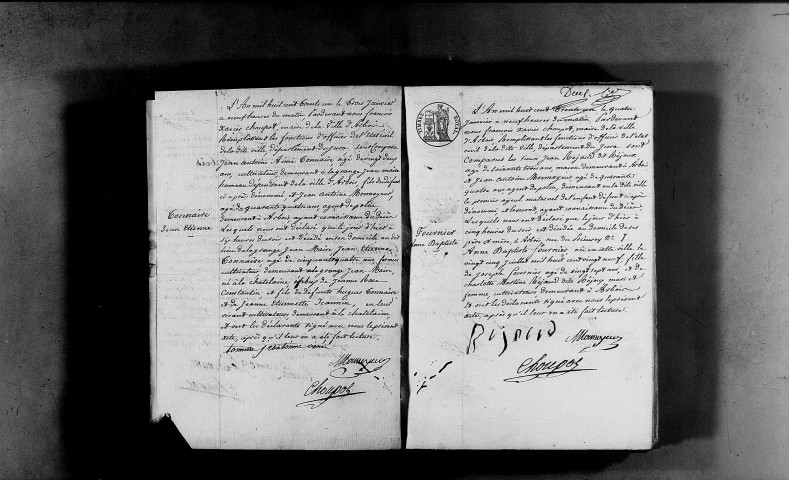 L'An mil huit cent trente un le trois Janvier
à neuf heures du matin pardevant nous françois
Xavier Choupot, maire de la Ville d'Arbois
Remplissant les fonctions d'officier de l'état civil
de la dite ville, département du Jura sont Comparus
Jean Antoine Aimé Tonnaire agé de vingt deux
ans, cultivateur, demeurant à la grange Jean maire
hameau dépendant de la ville d'Arbois, fils du défunt
ci après dénommé et Jean Antoine Momeyeur,
agé de quarante quatre ans, agent de police
demeurant à Arbois ayant connaissance du Décès
Lesquels nous ont déclaré que le jour d'hier à
heures du soir est décédé en son domicile au dit
lieu de la grange Jean Maire Jean Etienne
Tonnaire agé de cinquante quatre ans
cultivateur demeurant à la grange Jean Maire,
né à la chatelaine, époux de Jeanne
Constantin et fils de défunts hugues Tonnaire
et de Jeanne Etiennette Jeannin, en leur
vivant cultivateurs demeurant à la chatelaine,
et ont les déclarants signé avec nous le présent
acte, après qu'il leur en a été fait lecture.
Momeyeur
Choupot
Tonnaire
Jean Etienne
L'An mil huit cent trente un le quatre
Janvier à neuf heures du matin, pardevant
nous françois Xavier Choupot, maire de la ville
d'Arbois Remplissant les fonctions d'officier de l'état
civil de la dite ville, département du Jura, sont
Comparus les sieurs Jean Réjaud dit Bijoux
agé de soixante trois ans, demeurant à Arbois
et Jean Antoine Momeyeur agé de quarante
quatre ans agent de police, demeurant en la dite ville
le premier ayeul maternel de l'enfant défunt ci après
dénommé et le second ayant connaissance du Décès
Lesquels nous ont déclaré que le jour d'hier à
cinq heures du soir est décédée au domicile de ses
père et mère, à Arbois, rue du No 7
Anne Baptiste fournier née en cette ville le
vingt cinq Juillet mil huit cent vingt neuf, fille
de Joseph fournier agé de vingt sept ans, et de
charlotte Réjaud dits Bijoux, mari et
femme, cultivateurs demeurant à Arbois
et ont les déclarants signé avec nous le présent
acte, après qu'il leur en a été fait lecture.
Rejaud
Momeyeur
Choupot
Fournier
Anne Baptiste